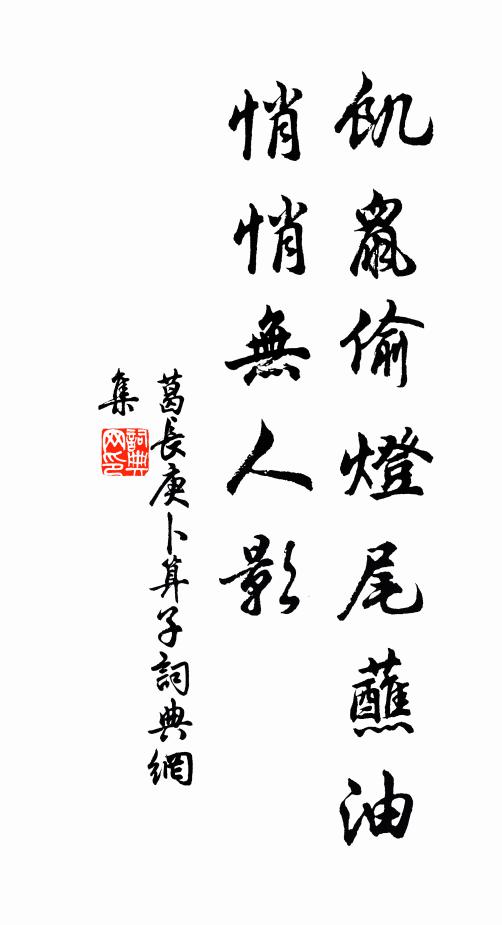 飢鼠偷燈尾蘸油
悄悄無人影
葛長庚卜算子詞典網
集
詞典網印